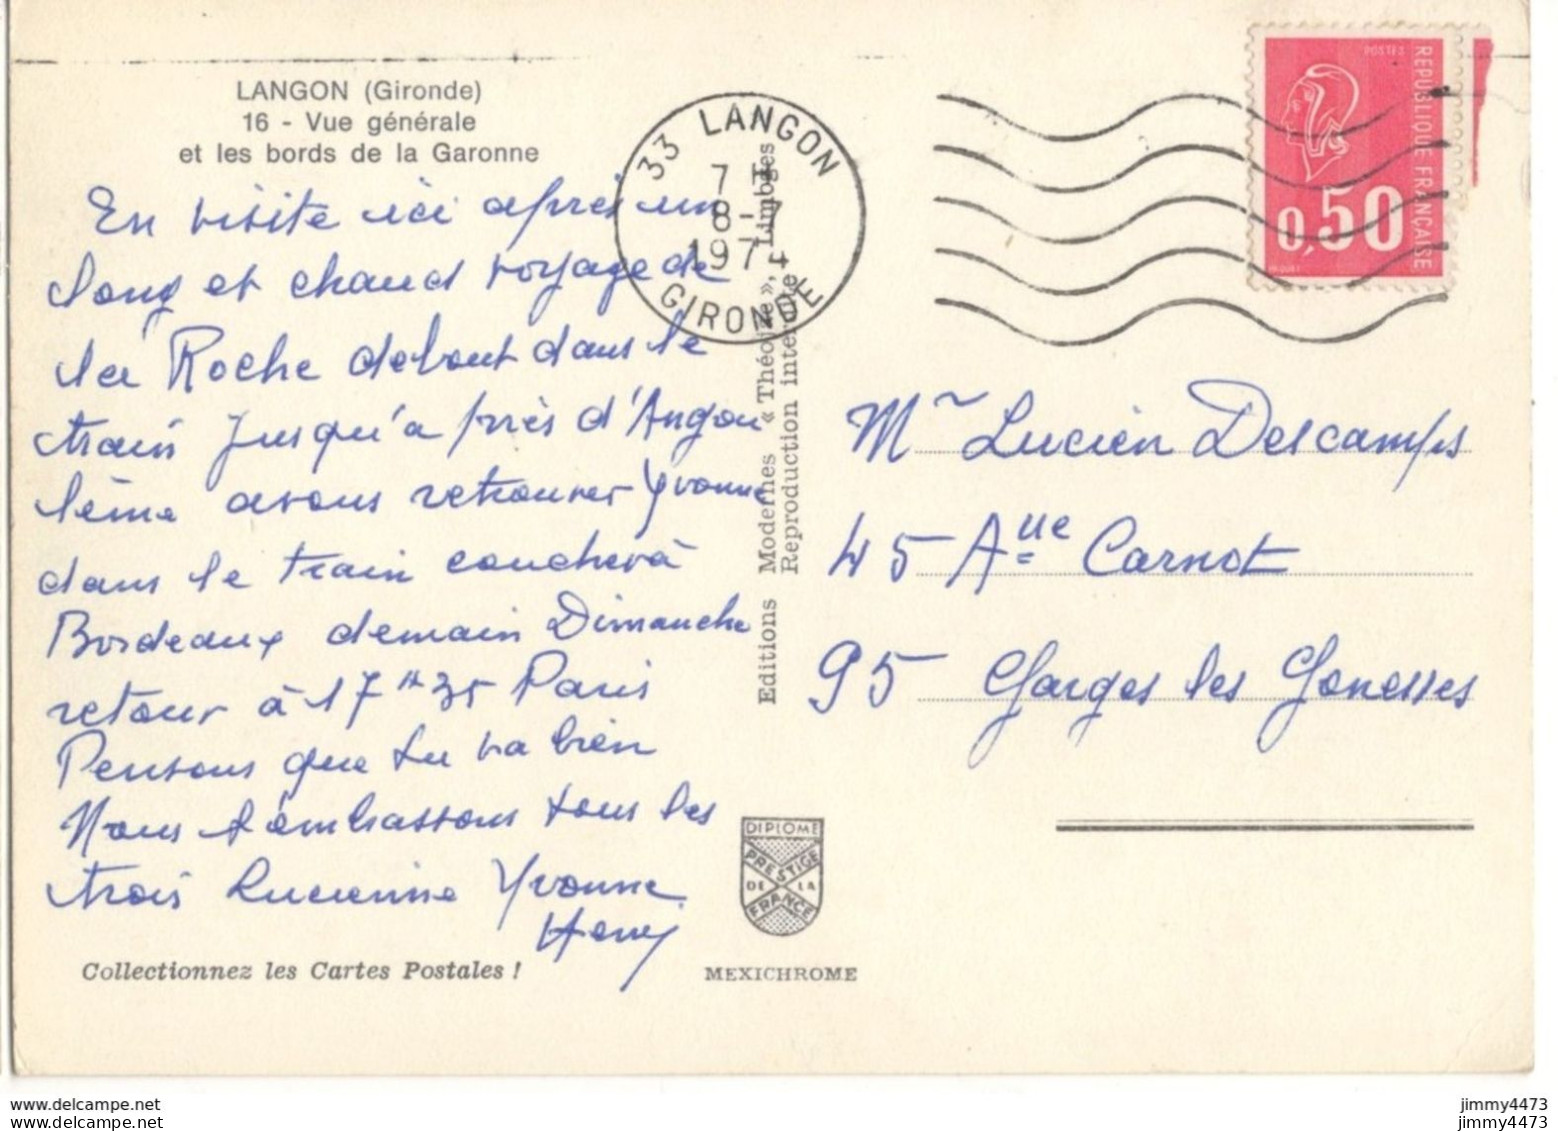 LANGON (Gironde)
16 - Vue générale
et les bords de la Garonne
En visite ici après un
long et chaud voyage de
la Roche debout dans le
train jusqu'a près d'Angou
lème avons retrouver Yvonne
dans le train coucher à
Bordeaux demain Dimanche
retour à 17 H 35 Paris
Pensons que tu va bien
Nous t'embrassons tous les
trois Lucienne Yvonne
Henry
Collectionnez les Cartes Postales !
33 LANGON
7 H
8-7
1974
GIRONDE
Editions Modernes « Théojac », Limoges
Reproduction interdite
DIPLOME
PRESTIGE
DE LA
FRANCE
MEXICHROME
POSTES
REPUBLIQUE FRANÇAISE
0,50
Mr Lucien Descamps
45 Aue Carnot
95 Garges les Gonesses
www.delcampe.net
www.delcampe.net
jimmy4473
jimmy4473